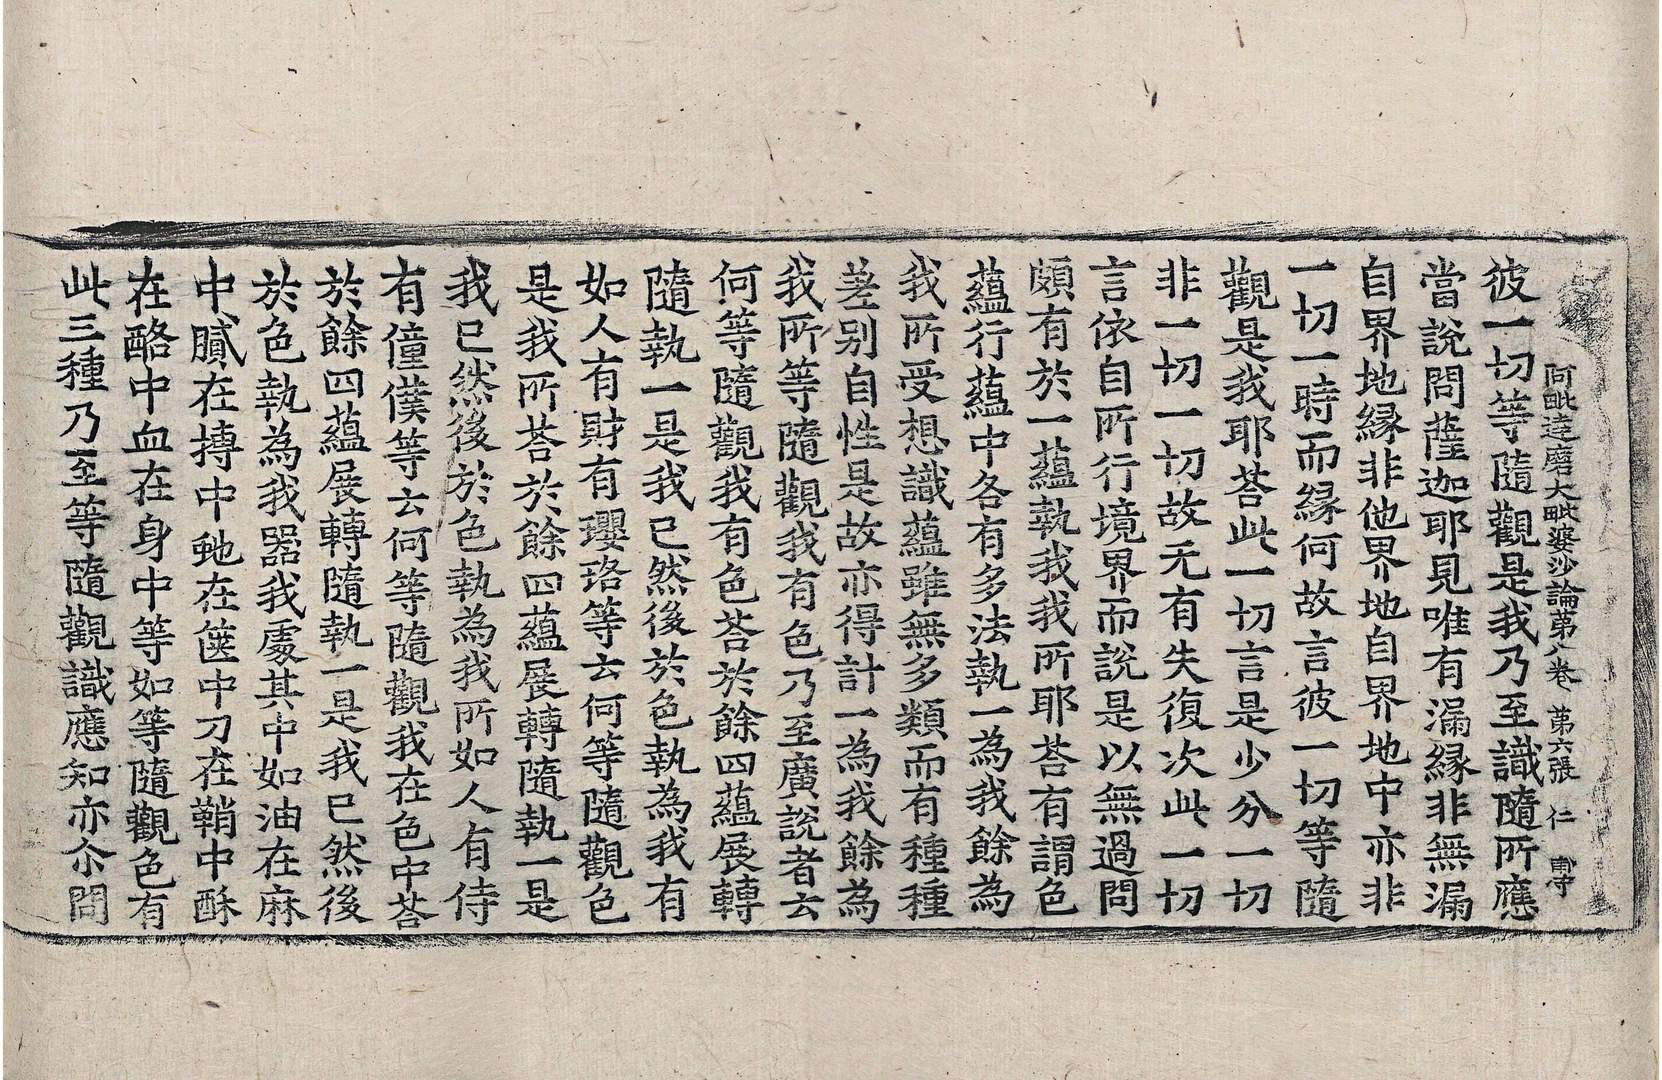 阿毗達磨大毗婆沙論第八卷 第六張 仁
彼一切等隨觀是我乃至識隨所應
當說問薩迦耶見唯有漏緣非無漏
自界地緣非他界地自界地中亦非
一切一時而緣何故言彼一切等隨
觀是我耶荅此一切言是少分一切
非一切一切故无有失復次此一切
言依自所行境界而說是以無過問
頗有於一蘊執我我所耶荅有謂色
蘊行蘊中各有多法執一為我餘為
我所受想識蘊雖無多類而有種種
差別自性是故亦得計一為我餘為
我所等隨觀我有色乃至廣說者云
何等隨觀我有色荅於餘四蘊展轉
隨執一是我已然後於色執為我有
如人有財有瓔珞等云何等隨觀色
是我所荅於餘四蘊展轉隨執一是
我已然後於色執為我所如人有侍
有僮僕等云何等隨觀我在色中荅
於餘四蘊展轉隨執一是我已然後
於色執為我器我處其中如油在麻
中膩在摶中虵在篋中刀在鞘中酥
在酪中血在身中等如等隨觀色有
此三種乃至等隨觀識應知亦尒問